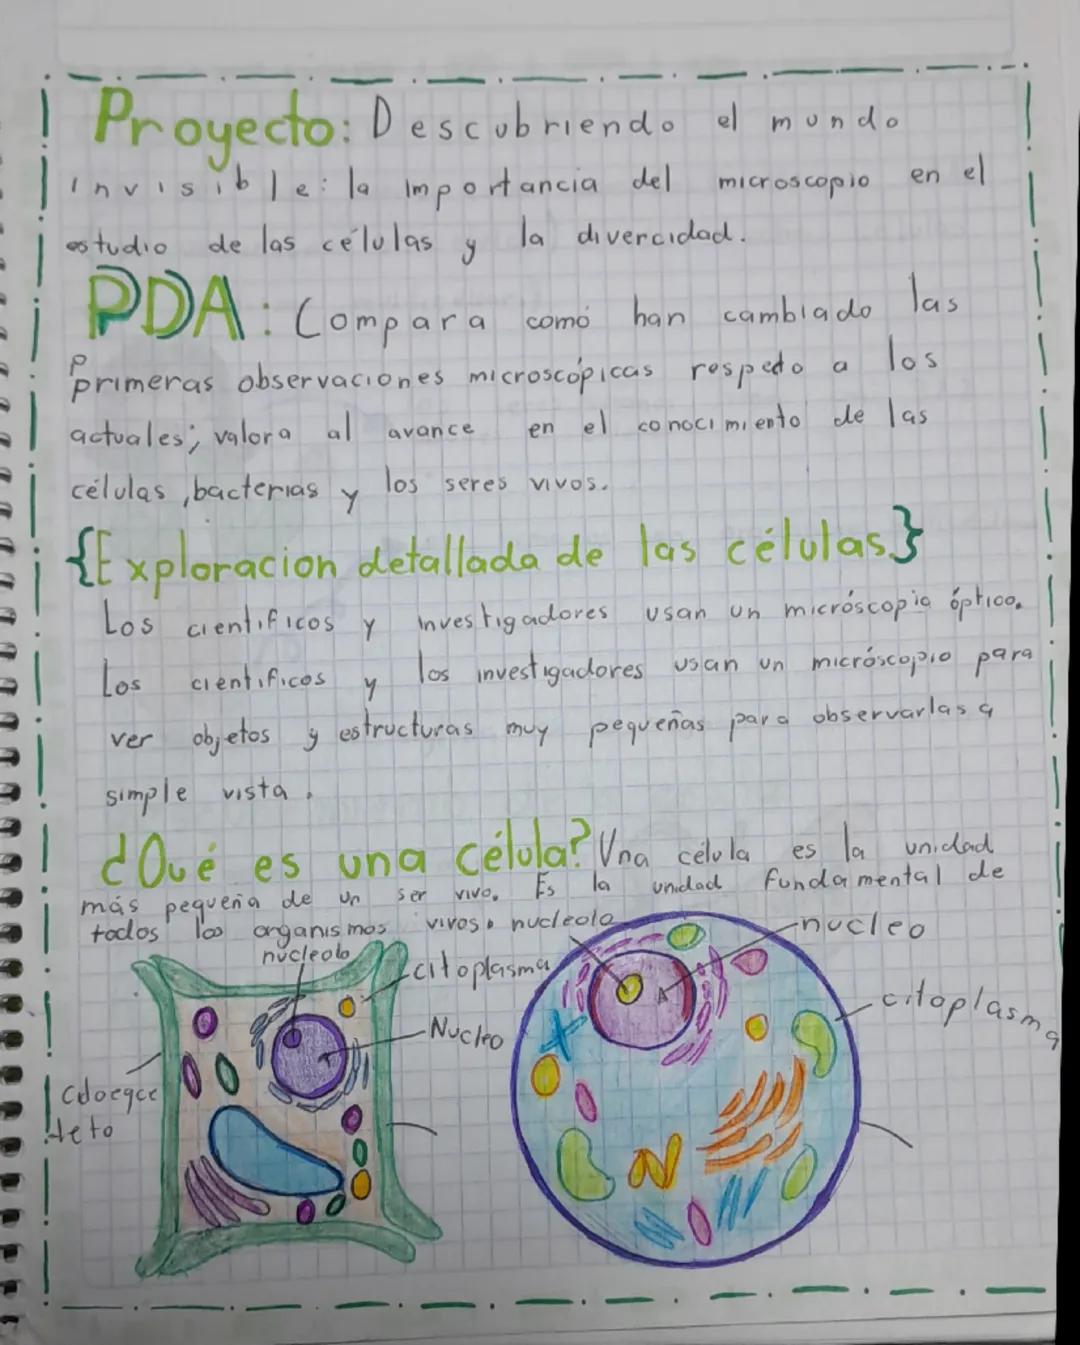 Proyecto: Descubriendo el mundo
invisible: la importancia del microscopio en el
estudio de las células y la divercidad.
PDA: Compara comó han cambiado las
primeras observaciones microscópicas respecto a los
actuales; valora al avance en el conocimiento de las
células, bacterias y los seres vivos.
{Exploracion detallada de las células}
Los cientificos y investigadores usan un micróscopio óptico.
Los cientificos y los investigadores usan un micróscopio para
ver objetos y estructuras muy pequeñas para observarlas a
simple vista.
¿Qué es una célula? Una célula es la unidad
más pequeña de un ser vivo. Es la unidad fundamental de
todos los organismos vivos.
nucleolo
nucleo
nucleolo
citoplasma
citoplasma
Nucleo